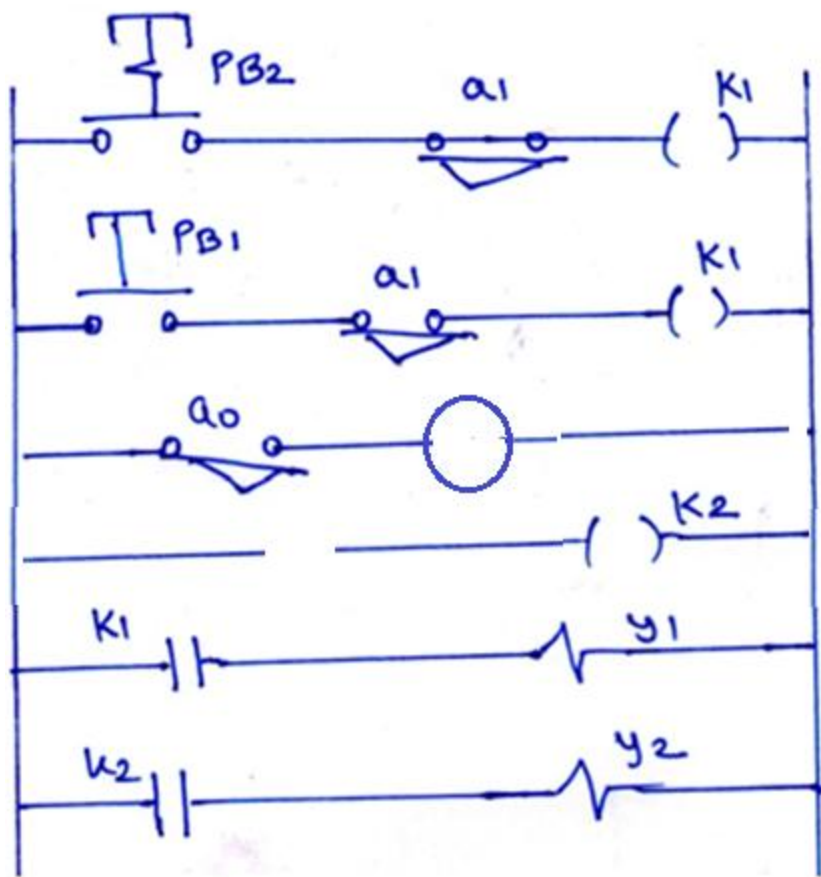 PB2 a1 K1
PB1 a1 K1
a0
K2
K1 y1
K2 y2